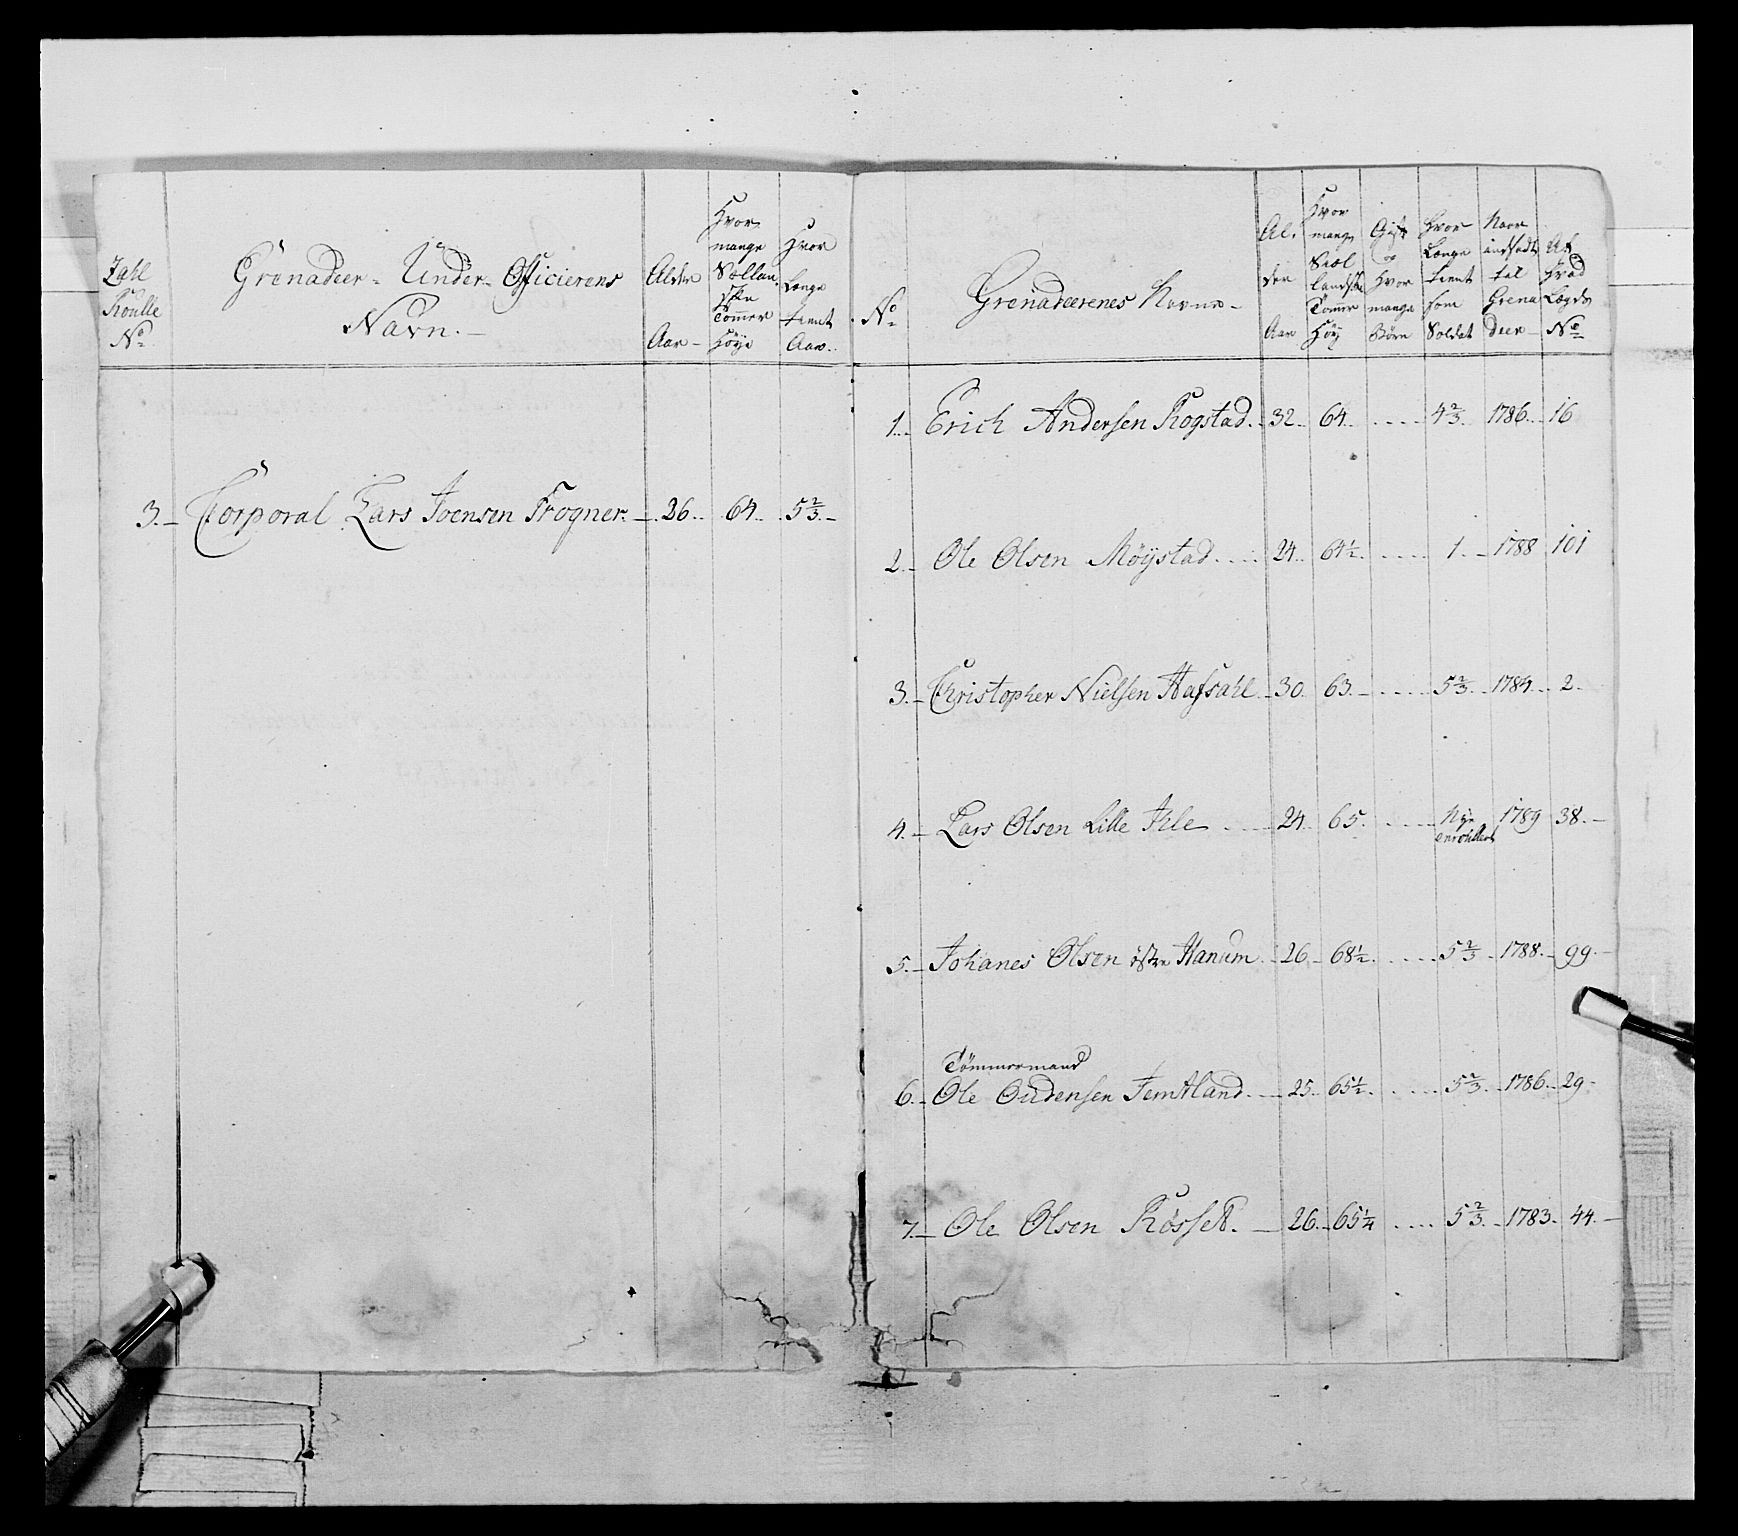 Zahl
Roulle
No
Grenadeer-Under-Officierens
Navn.
Alder
Aar
Hvor
mange
Sællan-
ske
Tommer
Høye
Hvor
Længe
tient
Aar
3. Corporal Lars Joensen Frogner. 26. 64. 5 2/3.
No
Grenadeerenes Navne
Al-
der
Aar
Hvor
mange
Siæl
landske
Tommer
Høy
Gift
og
Hvor
mange
Børn
Hvor
Længe
tient
som
Soldat
Naar
indsadt
til
Grena
deer
Af
Hvad
Lægds
No
1. Erich Andersen Rogstad. 32. 64. 4 2/3. 1786. 16
2. Ole Olsen Møystad. 24. 64 1/2. 1. 1788 101
3. Christopher Nielsen Hafsahl. 30. 63. 5 2/3. 1784. 2.
4. Lars Olsen Lille Ihle 24. 65. Nye enroullert 1789 38.
5. Johanes Olsen østre Hanum. 26. 68 1/2. 5 2/3. 1788. 99.
Tömmermand
6. Ole Oudensen Jemtland. 25. 65 1/2. 5 2/3. 1786. 29.
7. Ole Olsen Rösset. 26. 65 1/4 5 2/3. 1783. 44.